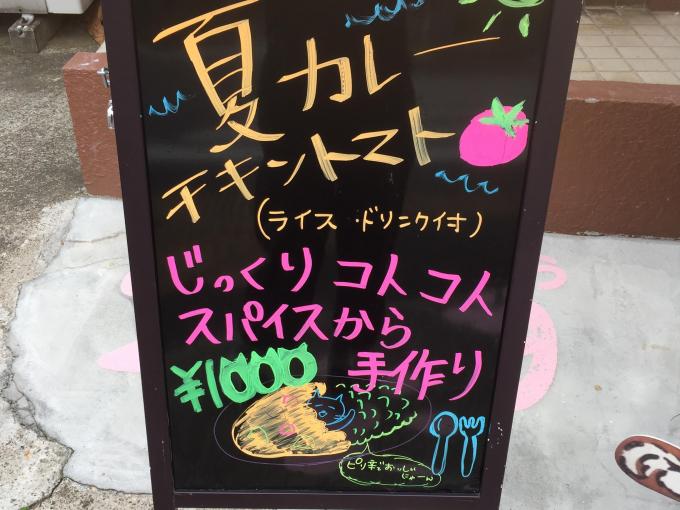 夏カレー
チキントマト
(ライス・ドリンク付)
じっくり コトコト
スパイスから
¥1000 手作り
ピリ辛でおいしい
にゃーん